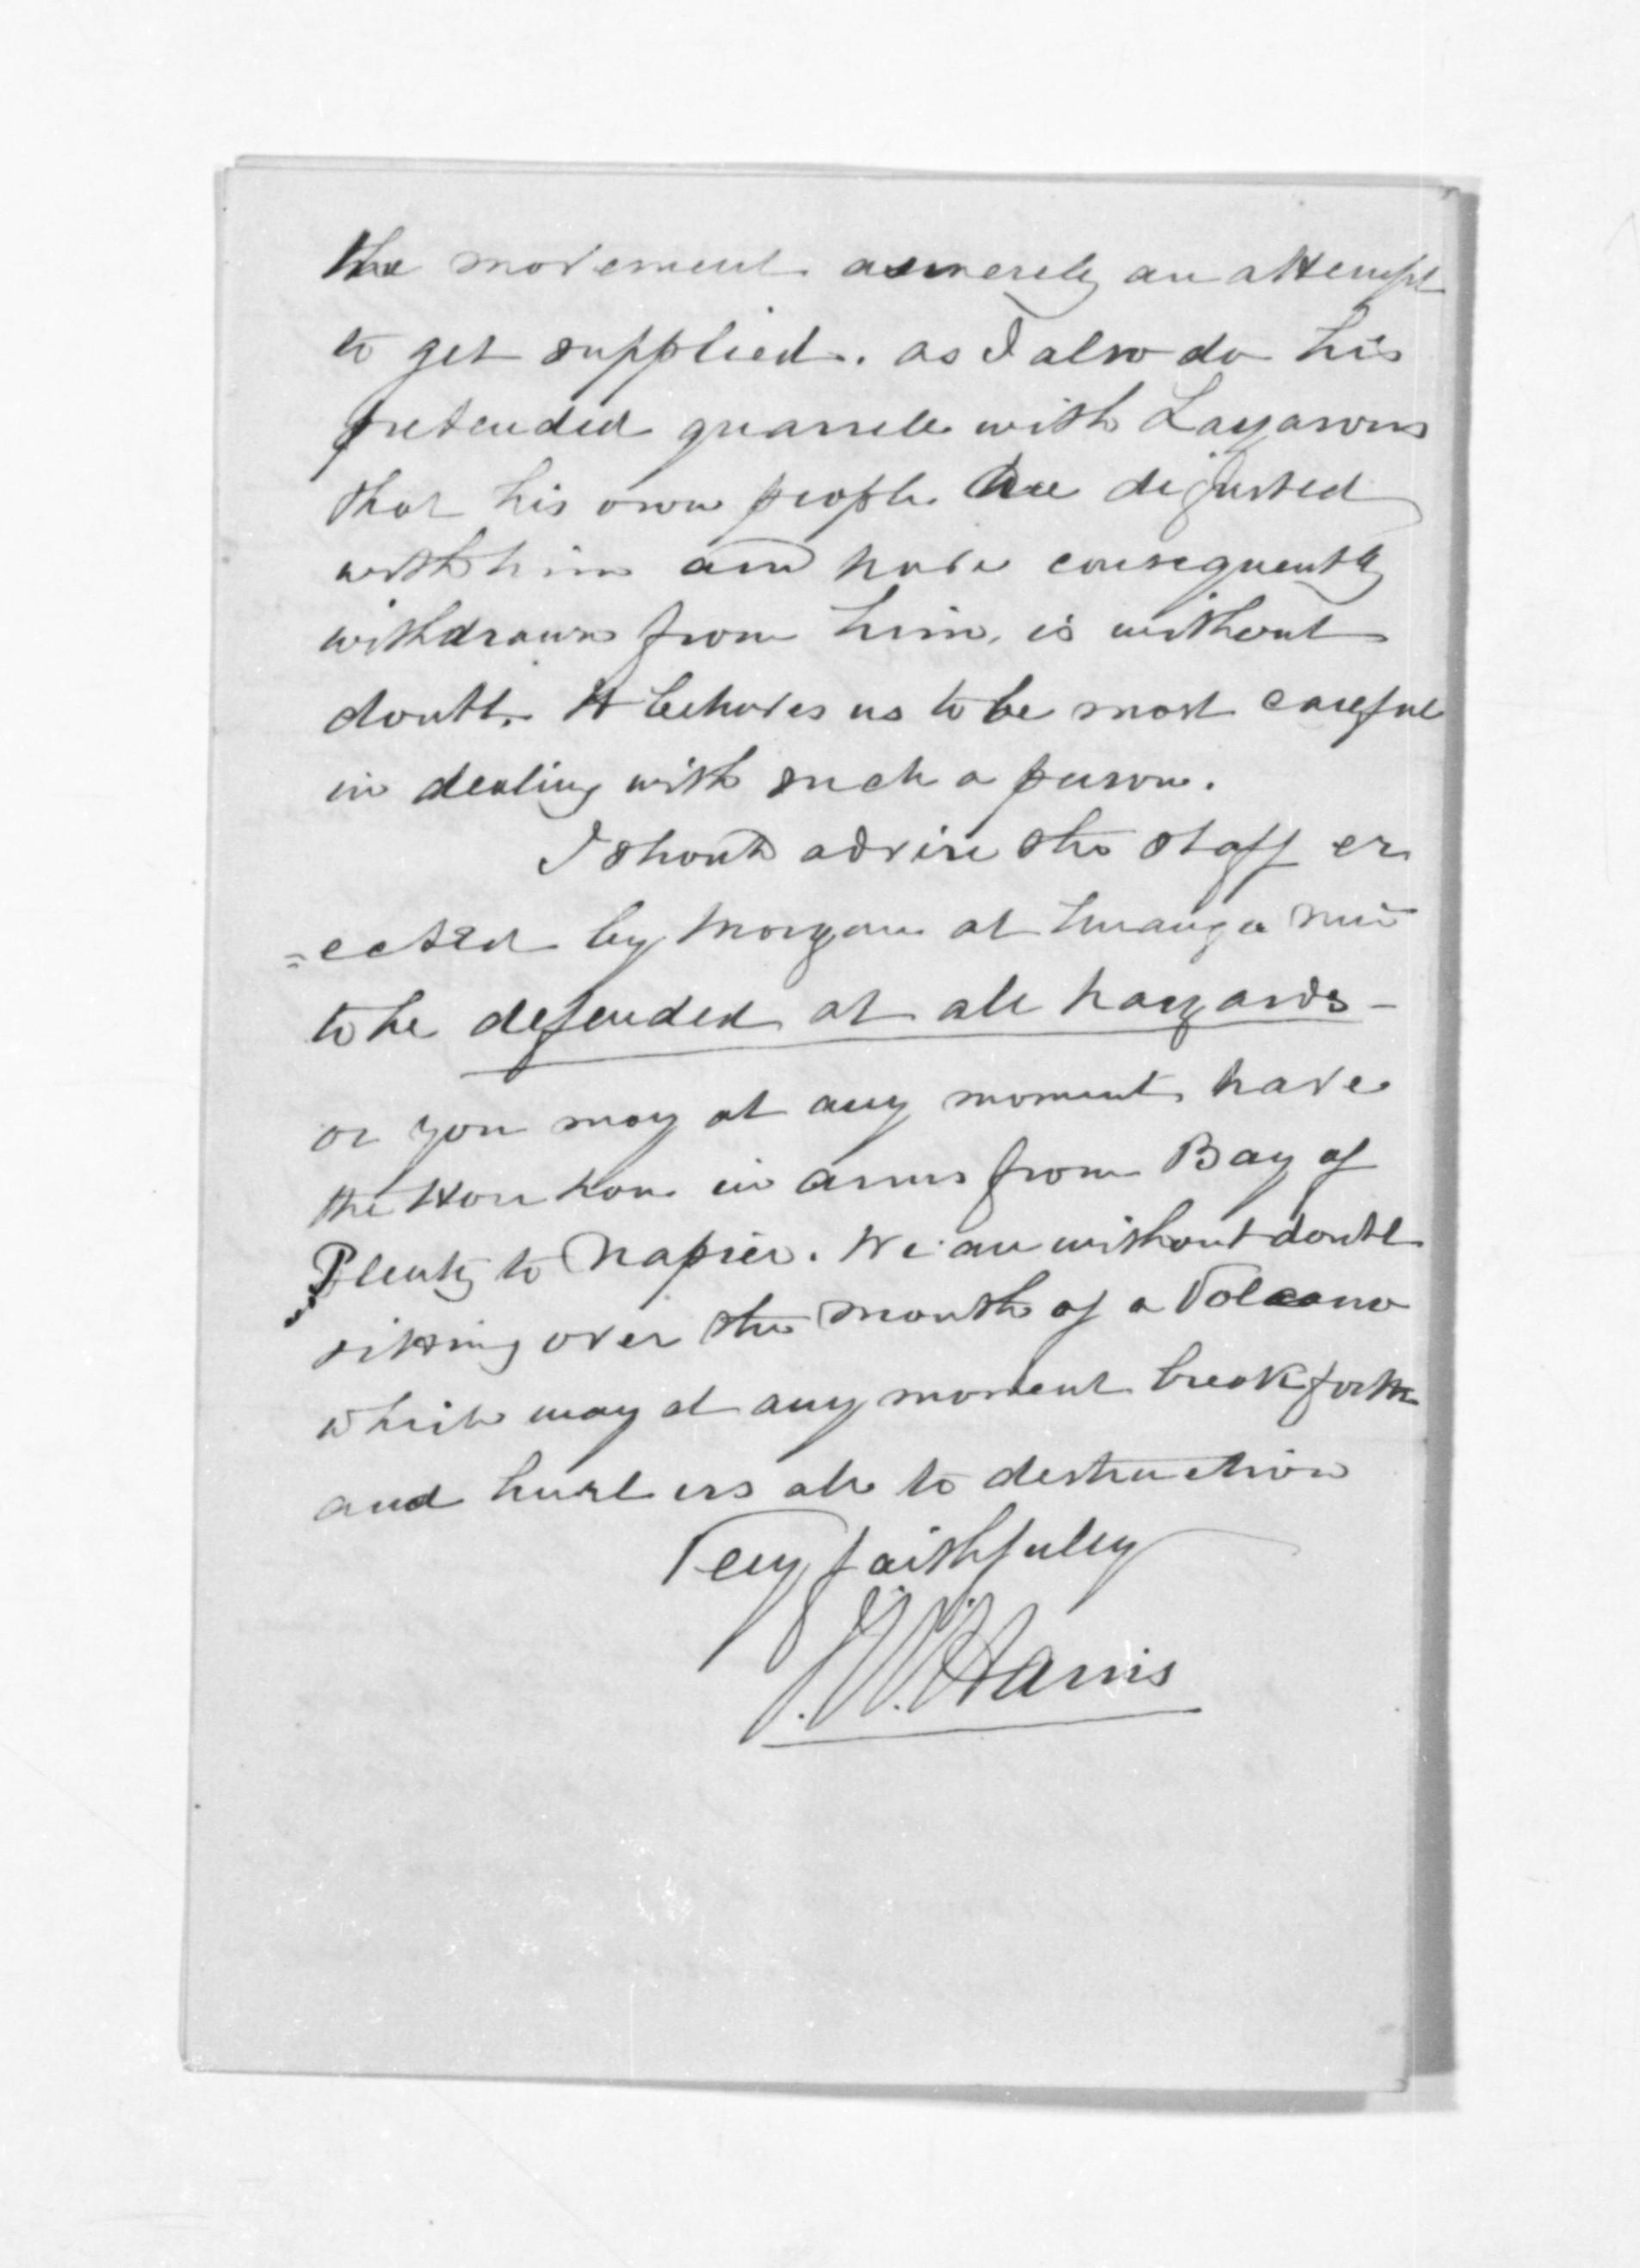 the movement as merely an attempt
to get supplied. as I also do his
pretended quarrell with Lazarous
that his own people are disgusted
with him and have consequently
withdrawn from him, is without
doubt. It behoves us to be most careful
in dealing with such a person.
I should advise the staff er
=ected by Morgan at Turanga nui
to be defended at all hazards -
or you may at any moment have
the Hou hou in arms from Bay of
Plenty to Napier. We are without doubt
sitting over the mouth of a Volcano
which may at any moment break forth
and hurl us all to destruction
Very faithfully
J.W. Harris